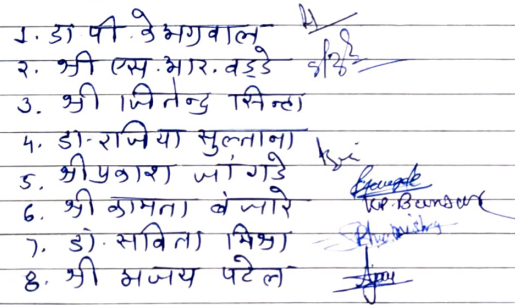 1. डा पी. के अग्रवाल
२. श्री एस. आर. वड्डे
3. श्री जितेन्द्र सिन्हा
4. डा. रजिया सुल्ताना
5. श्री प्रकाश जांगडे
6. श्री कामता बंजारे
7. डॉ. सविता मिश्रा
8. श्री अजय पटेल